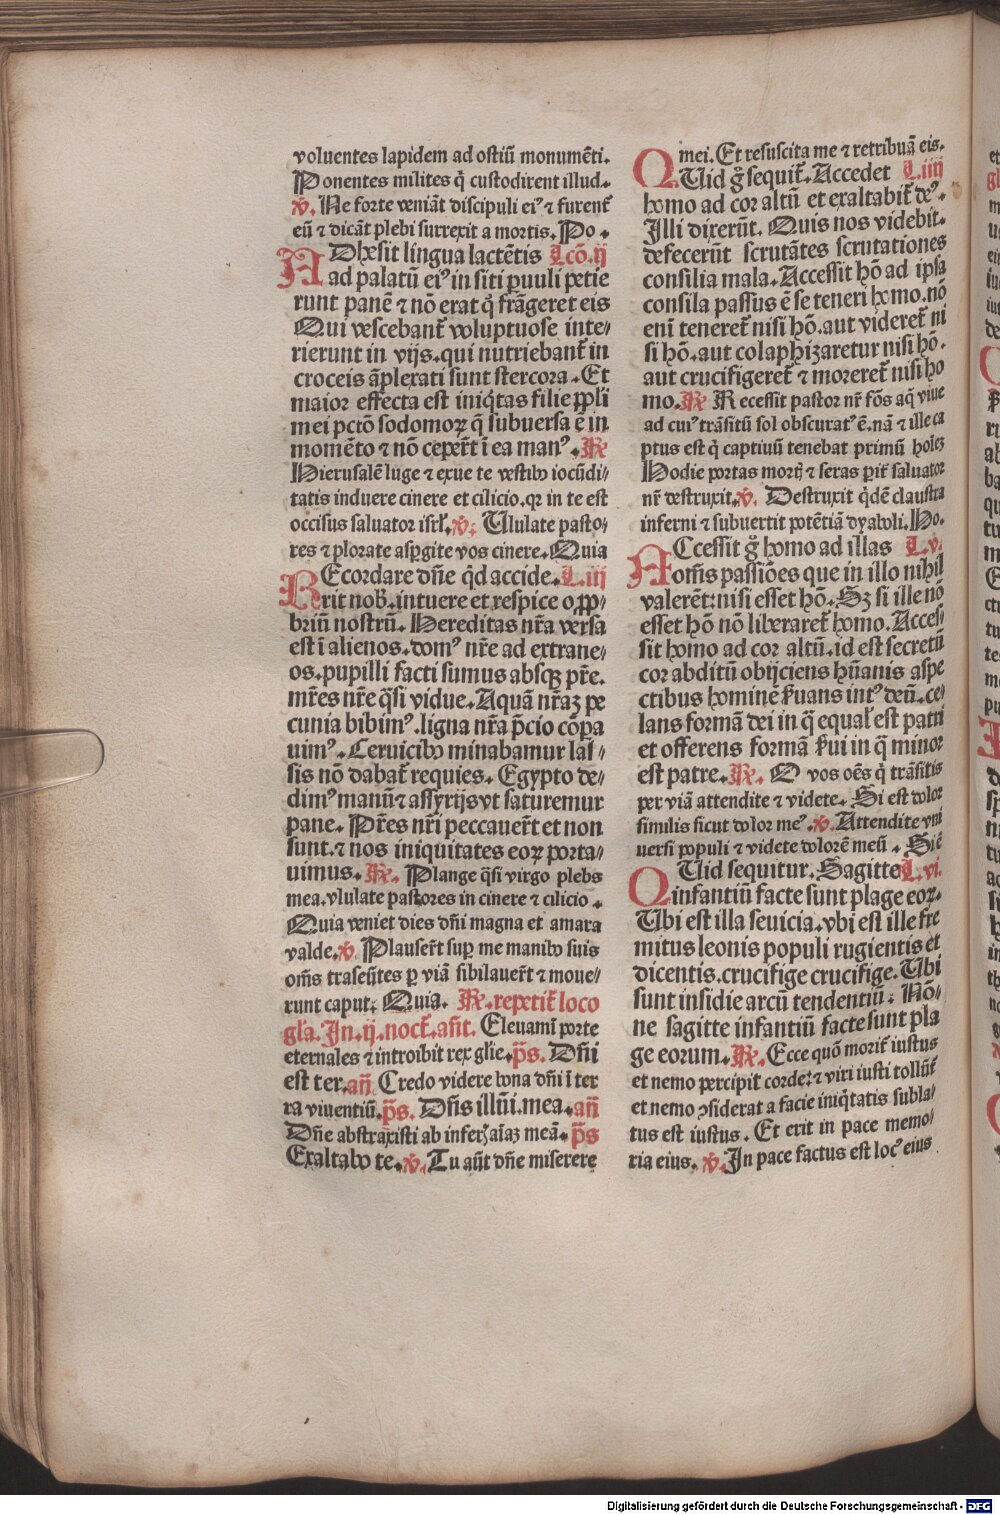 voluentes lapidem ad ostiū monumēti.
Ponentes milites q̇ custodirent illud.
℣. Ne forte veniāt discipuli ei⁹ ⁊ furent̄
eū ⁊ dicāt plebi surrexit a mortis. Po.
ADhesit lingua lactētis Lcō.ij
ad palatū ei⁹ in siti ꝑuuli petie
runt panē ⁊ nō erat q̇ frāgeret eis
Qui vescebant̄ voluptuose inte/
rierunt in vijs.qui nutriebant̄ in
croceis āplexati sunt stercora. Et
maior effecta est iniq̇tas filie ppl̄i
mei pctō sodomoꝝ q̄ subuersa ē in
momēto ⁊ nō ceper̄t ī ea man⁹. ℟
Hierusalē luge ⁊ exue te vestibꝰ iocūdi/
tatis induere cinere et cilicio.qr in te est
occisus saluator isrl̄. ℣. Ululate pasto/
res ⁊ plorate asꝑgite vos cinere. Quia
REcordare dn̄e q̇d accide. L.iij
rit nob̄.intuere et respice opp/
briū nostrū. Hereditas nr̄a versa
est ī alienos.dom⁹ nr̄e ad extrane/
os.pupilli facti sumus absqꝫ pr̄e.
mr̄es nr̄e q̄si vidue. Aquā nr̄aꝫ pe
cunia bibim⁹.ligna nr̄a p̄cio cōpa
uim⁹. Ceruicibꝰ minabamur las/
sis nō dabat̄ requies. Egypto de/
dim⁹ manū ⁊ assyrijs vt saturemur
pane. Pr̄es nr̄i peccauer̄t et non
sunt.⁊ nos iniquitates eoꝝ porta/
uimus. ℟. Plange q̄si virgo plebs
mea.vlulate pastores in cinere ⁊ cilicio.
Quia veniet dies dn̄i magna et amara
valde. ℣. Plauser̄t suꝑ me manibꝰ suis
om̄s trāseūtes ꝑ viā sibilauer̄t ⁊ moue/
runt caput. Quia. ℟. repetit̄ loco
gl̄a. In .ij. noct̄. an̄t. Eleuami porte
eternales ⁊ introibit rex glie. p̄s. Dn̄i
est ter. an̄ Credo videre bona dn̄i ī ter
ra viuentiū. p̄s. Dn̄s illūi.mea. an̄
Dn̄e abstraxisti ab inferꝭ aīaꝫ meā. p̄s
Exaltabo te. ℣. Tu aūt dn̄e miserere
mei. Et resuscita me ⁊ retribuā eis.
QUid g̊ sequit̄. Accedet L.iiij
homo ad cor altū et exaltabit̄ de⁹.
Illi dixerūt. Quis nos videbit.
defecerūt scrutātes scrutationes
consilia mala. Accessit hō ad ipsa
consila passus ē se teneri homo.nō
enī teneret̄ nisi hō.aut videret̄ ni
si hō.aut colaphizaretur nisi hō.
aut crucifigeret̄ ⁊ moreret̄ nisi ho
mo. ℟ Recessit pastor nr̄ fōs aq̄ viue
ad cui⁹ trāsitū sol obscurat⁹ ē.nā ⁊ ille ca
ptus est q̇ captiuū tenebat primū hoīeꝫ
Hodie portas mortꝭ ⁊ seras ꝑit̄ saluator
nr̄ destruxit. ℣. Destruxit q̇dē claustra
inferni ⁊ subuertit potētiā dyaboli. Ho.
ACcessit g̊ homo ad illas L.v.
om̄s passiōes que in illo nihil
valerēt:nisi esset hō. Sꝫ si ille nō
esset hō nō liberaret̄ homo. Acces/
sit homo ad cor altū.id est secretū
cor abditū obijciens hūanis aspe
ctibus hominē ẜuans int⁹ deū.ce/
lans formā dei in q̄ equal̄ est patri
et offerens formā ẜui in q̄ minor
est patre. ℟. O vos oēs q̇ trāsitis
per viā attendite ⁊ videte. Si est dolor
similis sicut dolor me⁹. ℣. Attendite vni
uersi populi ⁊ videte dolorē meū. Si ē
QUid sequitur. Sagitte L.vi.
infantiū facte sunt plage eoꝝ.
Ubi est illa seuicia.vbi est ille fre
mitus leonis populi rugientis et
dicentis.crucifige crucifige. Ubi
sunt insidie arcū tendentiū. Nō/
ne sagitte infantiū facte sunt pla
ge eorum. ℟. Ecce quō morit̄ iustus
et nemo percipit corde:⁊ viri iusti tollūt̄
et nemo ꝯsiderat a facie iniq̇tatis subla/
tus est iustus. Et erit in pace memo/
ria eius. ℣. In pace factus est loc⁹ eius
Digitalisierung gefördert durch die Deutsche Forschungsgemeinschaft - DFG